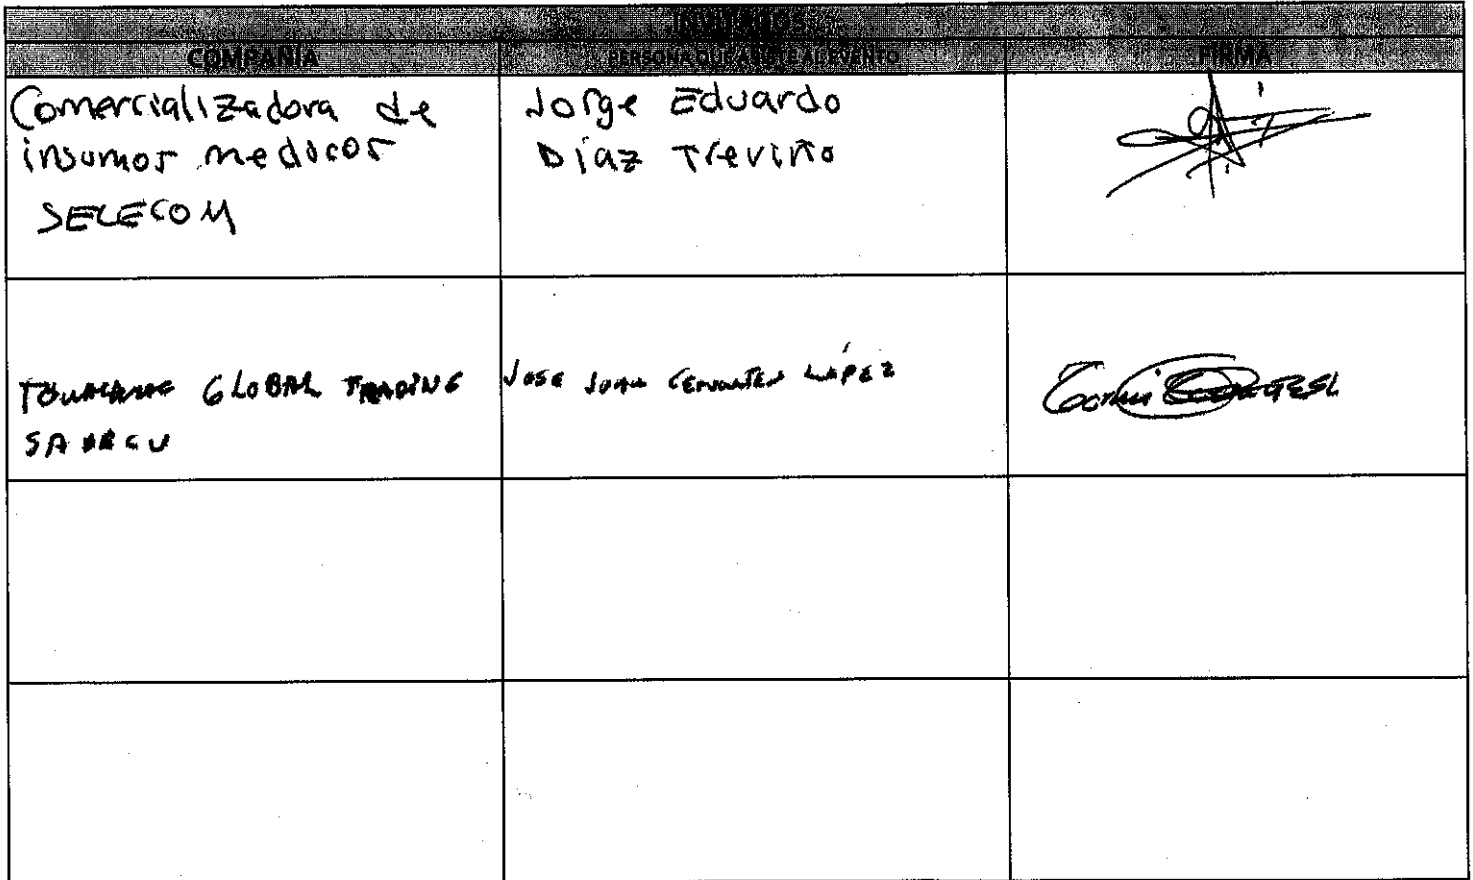 INVITADOS
COMPAÑÍA PERSONA QUE ASISTE AL EVENTO FIRMA
Comercializadora de
insumos medicos
SELECOM
Jorge Eduardo
Díaz Treviño
GLOBAL TRADING
SA DE CV
JOSE JUAN CERVANTES LÓPEZ